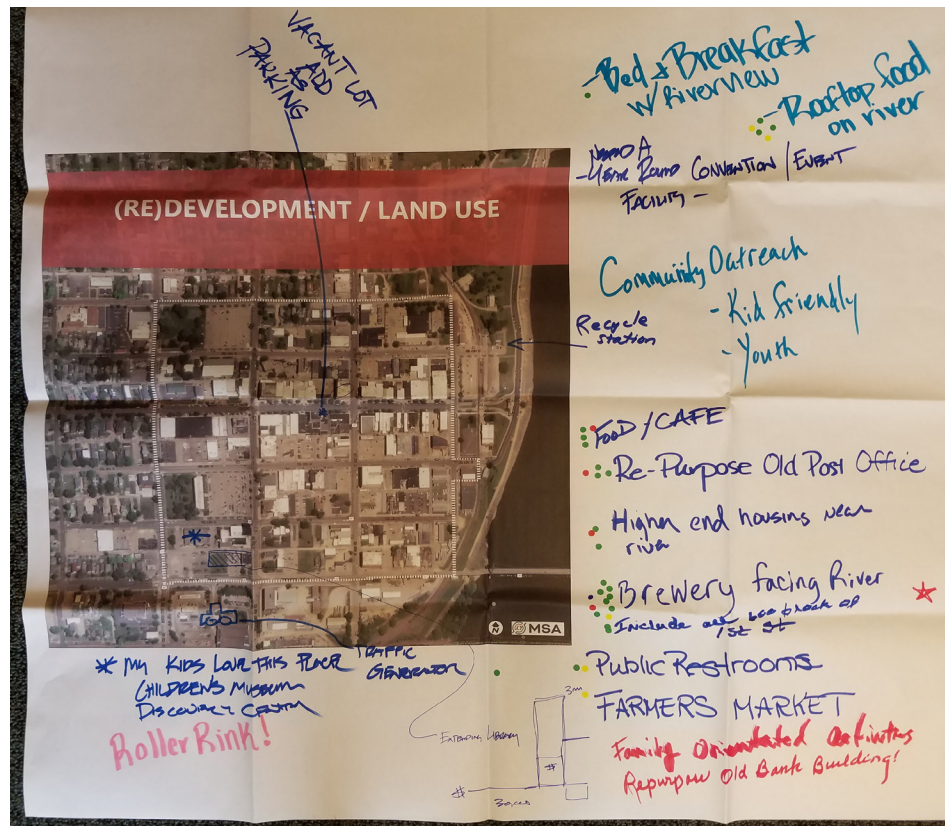 VACANT LOT
ADD
AS
PARKING
- Bed & Breakfast
w/ RiverView
- Rooftop food
on river
NEED A
- YEAR ROUND CONVENTION / EVENT
FACILITY -
(RE)DEVELOPMENT / LAND USE
Community Outreach
- Kid friendly
- Youth
Recycle
station
FOOD / CAFE
Re-Purpose Old Post Office
Higher end housing near
river
Brewery facing River
Include
1st St
Public Restrooms
FARMERS MARKET
Family Orientated activities
Repurpose Old Bank Building!
MSA
* MY KIDS LOVE THIS PLACE
CHILDRENS MUSEUM
DISCOVERY CENTER
TRAFFIC
GENERATOR
Roller Rink!
Extending Library